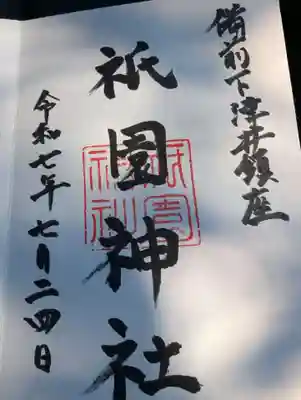 備前下津井鎮座
祇園神社
令和七年七月二四日